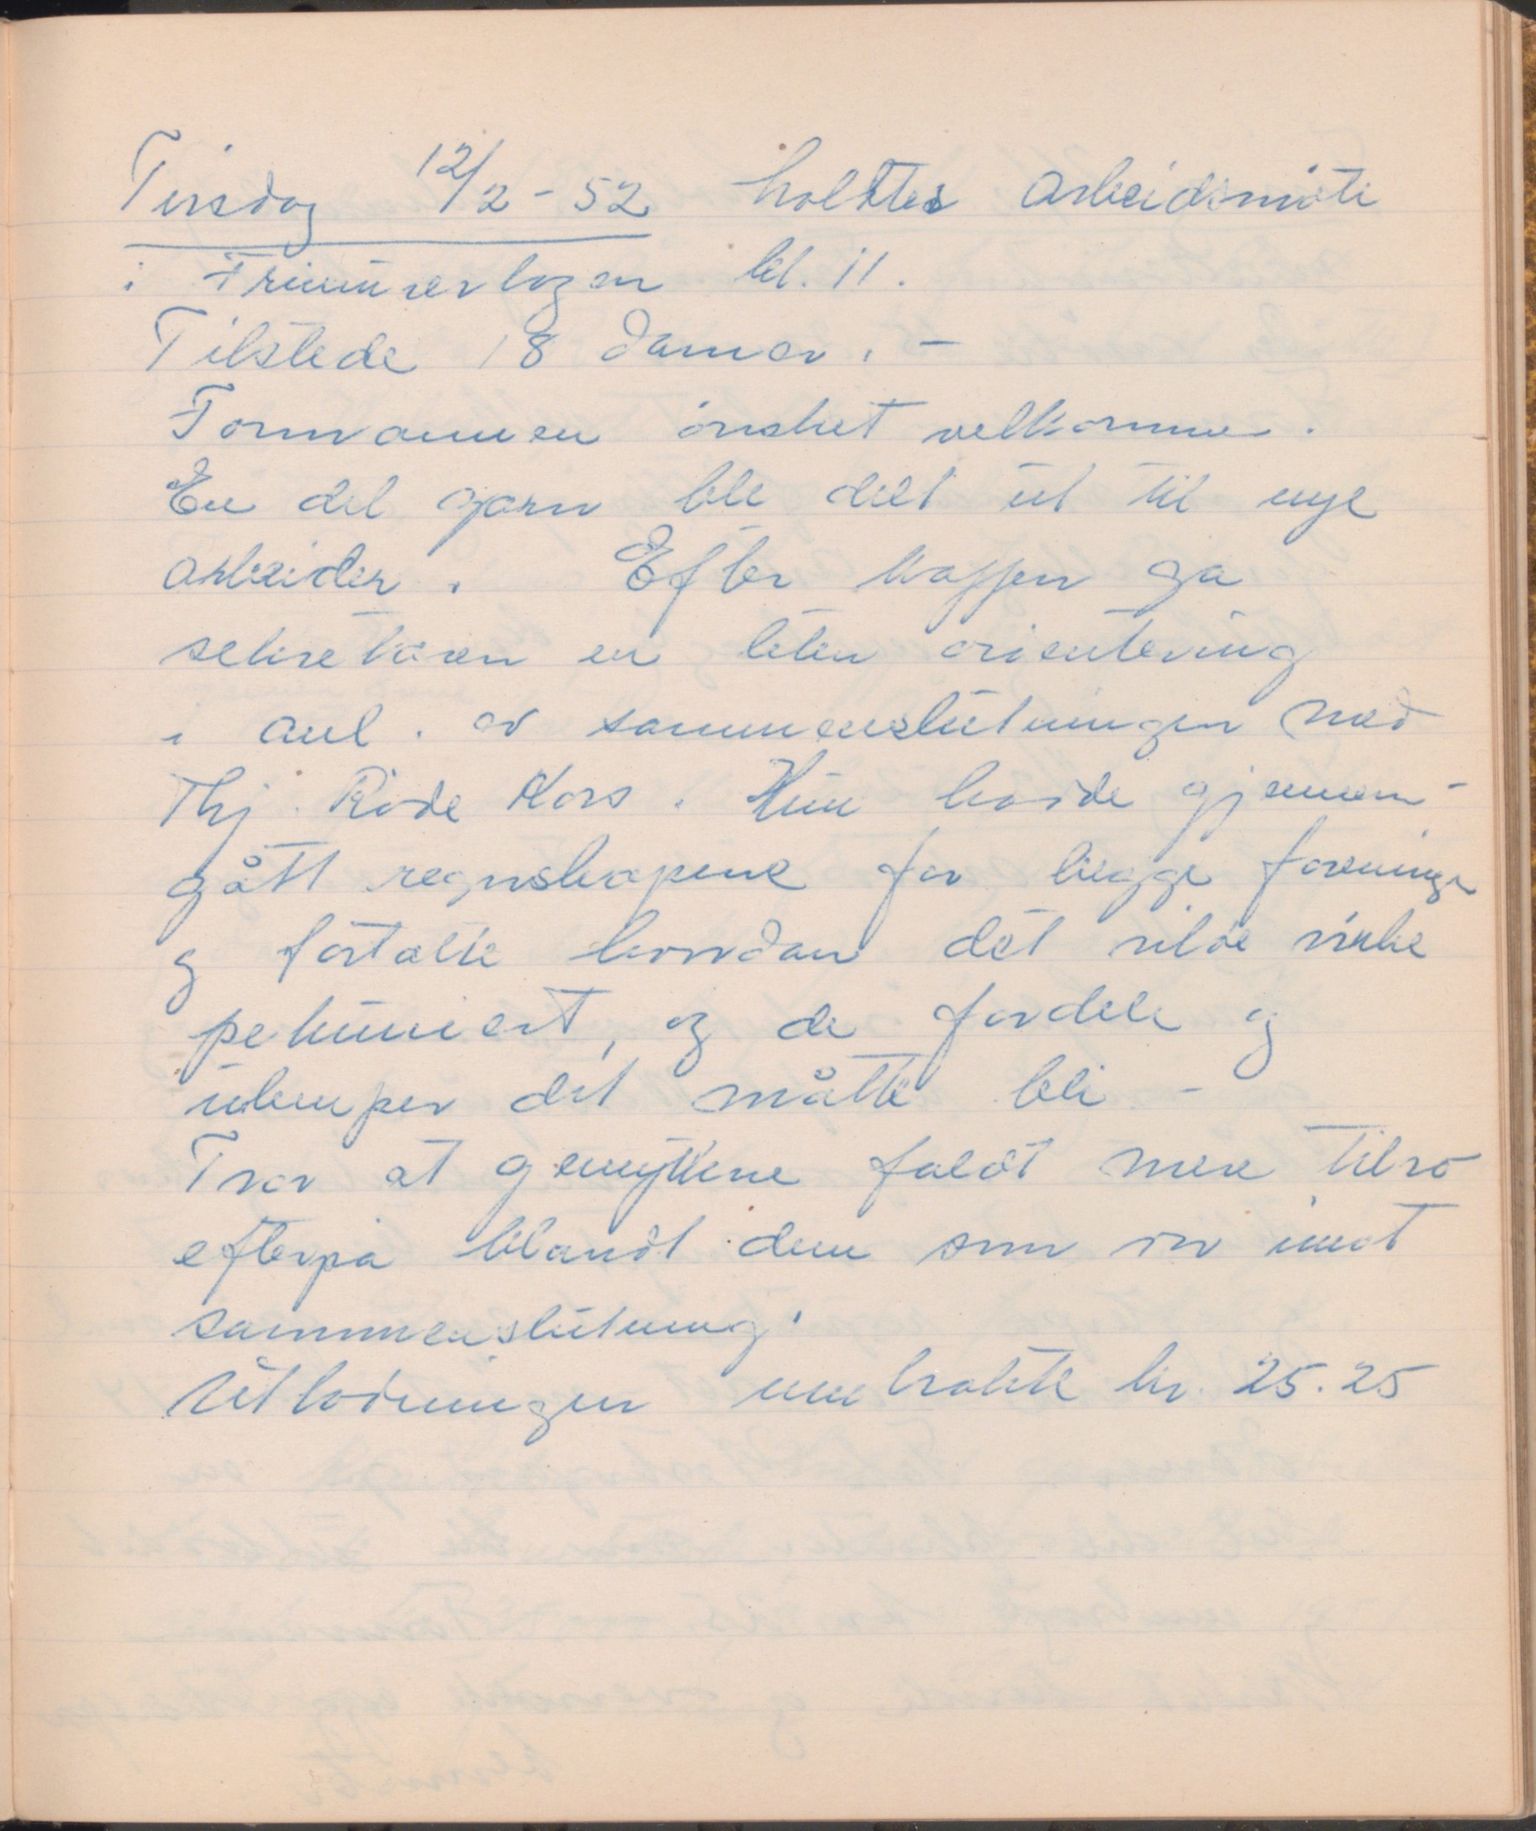 Tirsdag 12/2-52 holdtes arbeidsmöte
i Frimurerlogen kl. 11.
Tilstede 18 damer. -
Formannen ønsket velkommen.
En del garn ble delt ut til nye
arbeider. Efter kaffen ga
sekretæren en liten orientering
i anl. av sammenslutningen med
Thj. Röde Kors. Hun hadde gjennem-
gått regnskapene for begge foreninger
og fortalte hvordan det vilde virke
pekuniert, og de fordele og
ulemper det måtte bli -
Tror at gemyttene faldt mere tilro
efterpå blandt dem som var imot
sammenslutning.
Utlodningen innbrakte kr. 25.25